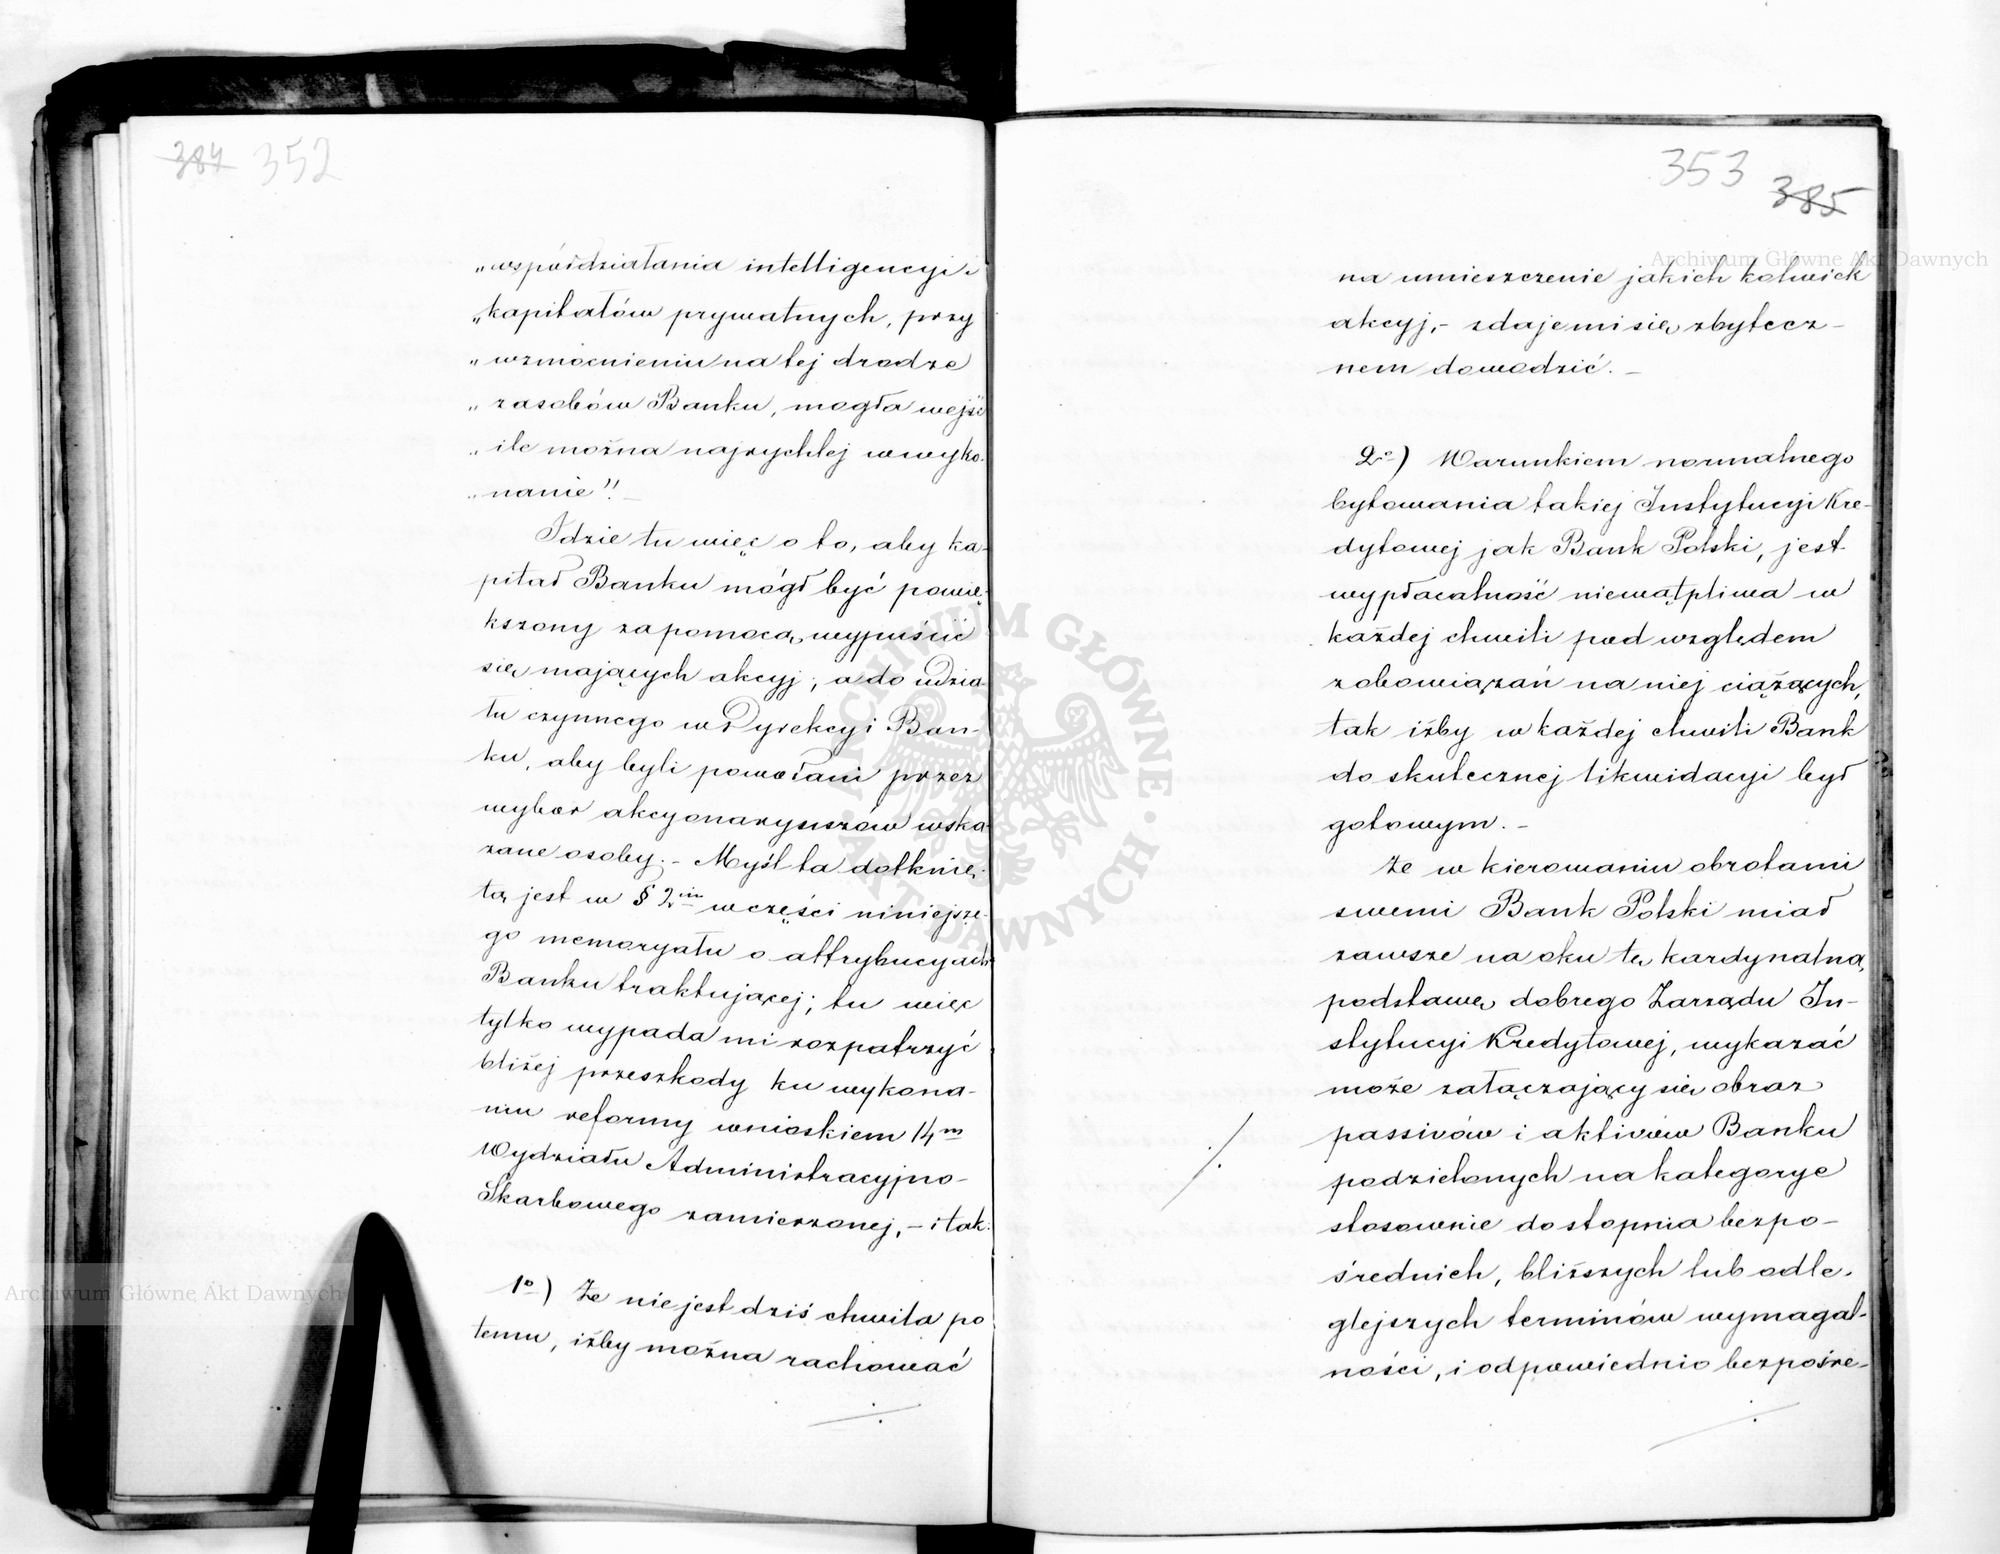 384 352
„współdziałania intelligencyi i
„kapitałów prywatnych, przy
„wzmocnieniu na tej drodze
„zasobów Banku, mogła wejść
„ile można najrychlej w wyko-
„nanie". —
Idzie tu więc o to, aby ka-
pitał Banku mógł być powię-
kszony za pomocą wypuścić
się mających akcyj, a do udzia-
łu czynnego w Dyrekcyi Ban-
ku, aby byli powołani przez
wybór akcyonaryuszów wska-
zane osoby. – Myśl ta dotknię-
tą jest w § 2im w części niniejsze-
go memoryału o attrybucyach
Banku traktującej; tu więc
tylko wypada mi rozpatrzyć
bliżej przeszkody ku wykona-
niu reformy wnioskiem 14m
Wydziału Administracyjno-
Skarbowego zamierzonej, – i tak:
1o) Że nie jest dziś chwila po
temu, iżby można rachować
./.
353 385
na umieszczenie jakich kolwiek
akcyj, – zdaje mi się zbytecz-
nem dowodzić. –
2o) Warunkiem normalnego
bytowania takiej Instytucyi Kre-
dytowej jak Bank Polski, jest
wypłacalność niewątpliwa w
każdej chwili pod względem
zobowiązań na niej ciążących,
tak iżby w każdej chwili Bank
do skutecznej likwidacyi był
gotowym. –
Że w kierowaniu obrotami
swemi Bank Polski miał
zawsze na oku tę kardynalną
podstawę dobrego Zarządu In-
stytucyi Kredytowej, wykazać
może załączający się obraz
passivów i aktivów Banku
./.
podzielonych na kategorye
stosownie do stopnia bezpo-
średnich, bliższych lub odle-
glejszych terminów wymagal-
ności, i odpowiednio bezpośre-
./.
Archiwum Główne Akt Dawnych
Archiwum Główne Akt Dawnych
ARCHIWUM GŁÓWNE AKT DAWNYCH